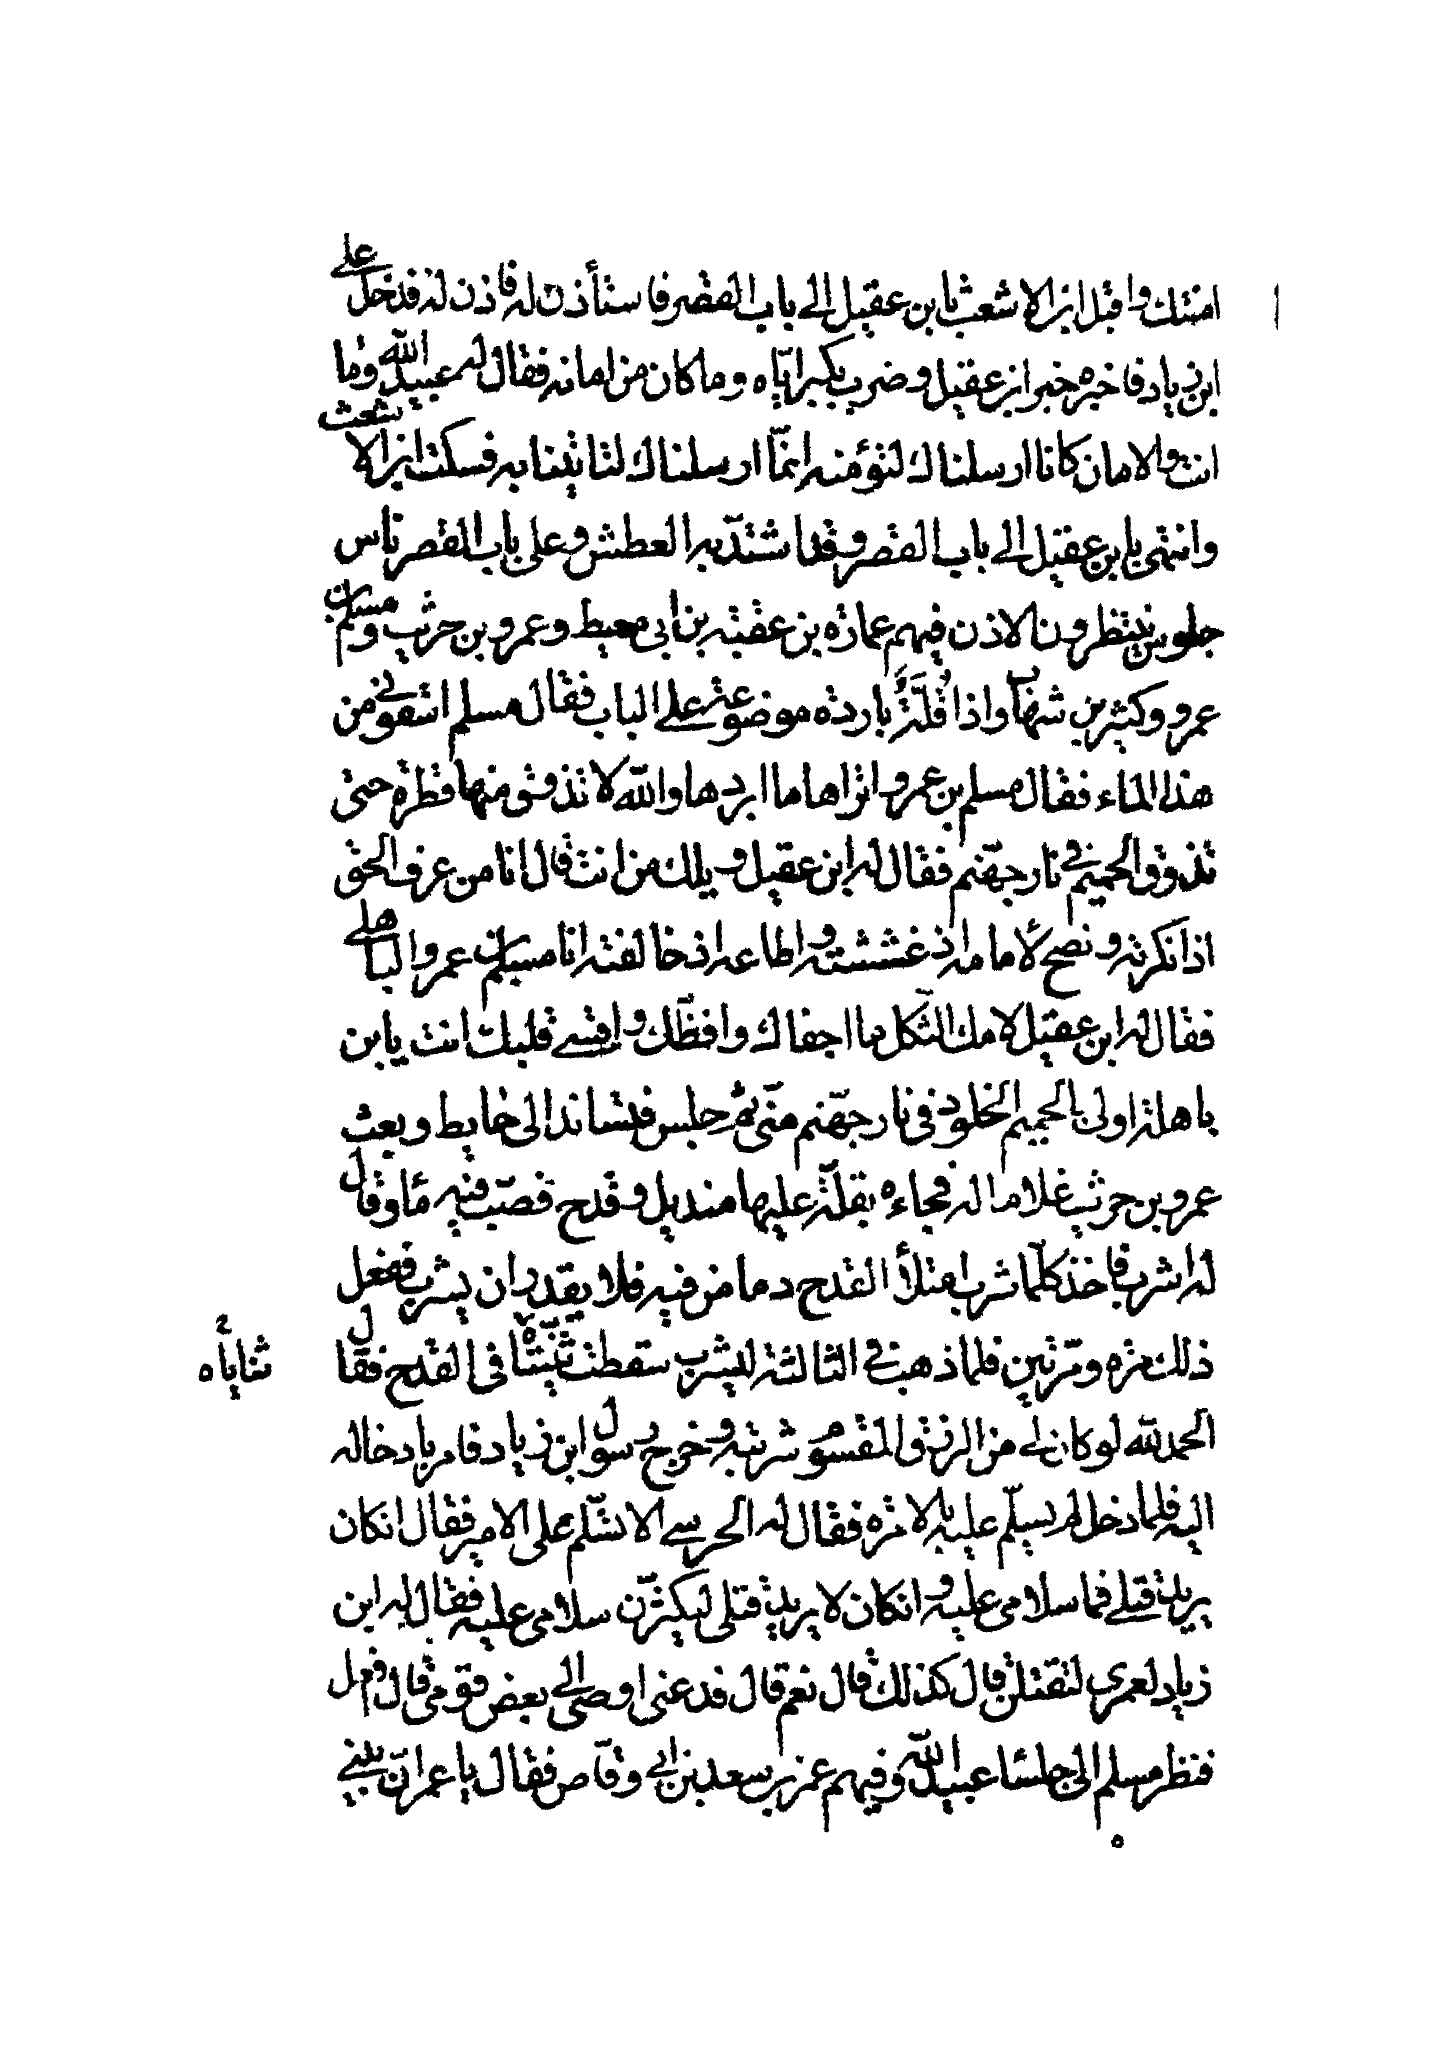 امنتك واقبل ابن الاشعث بابن عقيل الى باب القصر فاستأذن له فاذن له فدخل على
ابن زياد فاخبره خبر ابن عقيل وضرب بكير اياه وما كان من امانه فقال له عبيد الله وما
انت والامان كانا ارسلناك لتؤمنه انما ارسلناك لتاتينا به فسكت ابن الاشعث
وانتهى بابن عقيل الى باب القصر وقد اشتد به العطش وعلى باب القصر ناس
جلوس ينتظرون الاذن فيهم عمارة بن عقبة بن ابى معيط وعمرو بن حريث ومسلم بن
عمرو وكثير بن شهاب واذا قلة باردة موضوعة على الباب فقال مسلم اسقونى من
هذا الماء فقال مسلم بن عمرو اتراها ما ابردها والله لا تذوق منها قطرة حتى
تذوق الحميم فى نار جهنم فقال له ابن عقيل ويلك من انت قال انا من عرف الحق
اذ انكرته ونصح لأمامه اذ غششته واطاعه اذ خالفته انا مسلم بن عمرو الباهلى
فقال له ابن عقيل لامك الثكل ما اجفاك وافظك واقسى قلبك انت يابن
باهلة اولى بالحميم الخلود فى نار جهنم منى ثم جلس فتساند الى حايط وبعث
عمرو بن حريث غلاما له فجاءه بقلة عليها منديل وقدح فصب فيه ماء وقال
له اشرب فاخذ كلما شرب امتلأ القدح دما من فيه فلا يقدر ان يشرب ففعل
ذلك مرة ومرتين فلما ذهب فى الثالثة ليشرب سقطت ثنيتاه فى القدح فقال
ثناياه
الحمد لله لو كان لى من الرزق المقسوم شربته وخرج رسول ابن زياد فامر بادخاله
اليه فلما دخل لم يسلم عليه بالامرة فقال له الحرسى الا تسلم على الامير فقال انكان
يريد قتلى فما سلامى عليه وانكان لا يريد قتلى ليكثرن سلامى عليه فقال له ابن
زياد لعمرى لتقتلن قال كذلك قال نعم قال فدعنى اوصى الى بعض قومى قال افعل
فنظر مسلم الى جلساء عبيد الله وفيهم عمر بن سعد بن ابى وقاص فقال يا عمر ان بينى